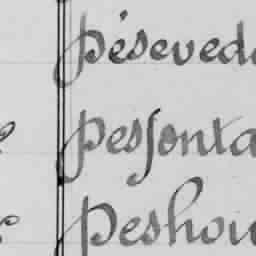 péseveda
pessonta
peshou